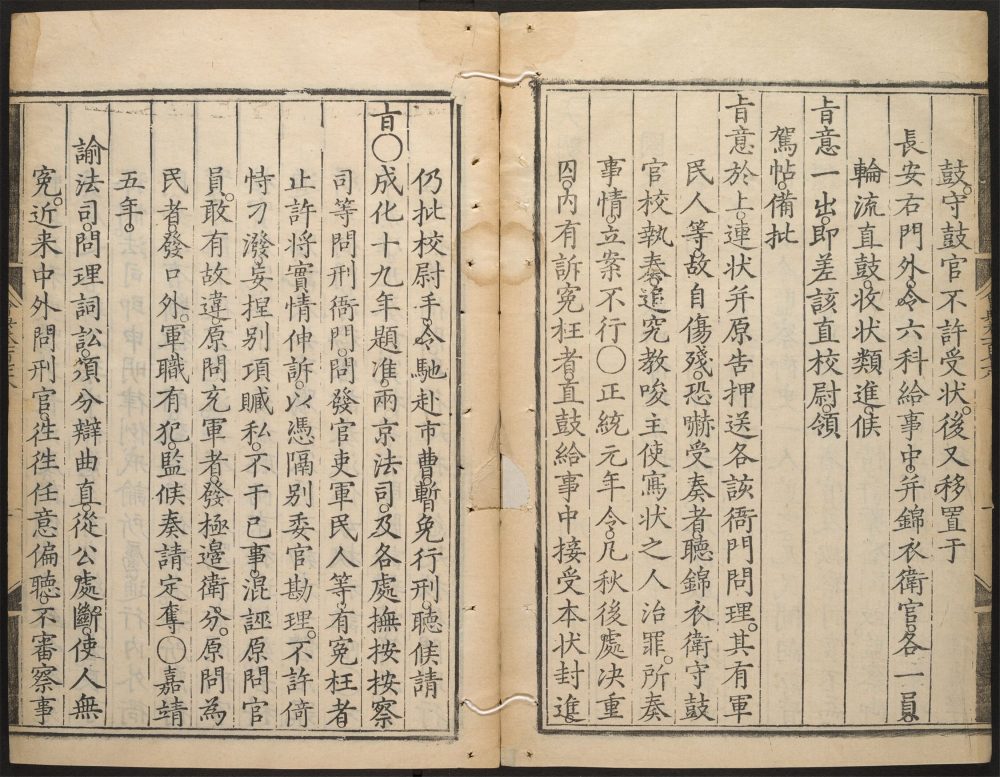 鼓。守鼓官不許受状。後又移置于
長安右門外。令六科給事中。并錦衣衛官。各一員。
輪流直鼓。收状類進。候
旨意一出。即差該直校尉。領
駕帖。備批
旨意於上。連状并原告押送各該衙門問理。其有軍
民人等。故自傷殘。恐嚇受奏者。聽錦衣衛守鼓
官校執奏。追究教唆主使寫状之人治罪。所奏
事情。立案不行〇正統元年令。凡秋後處决重
囚。内有訴寃枉者。直鼓給事中接受本状封進。
仍批校尉手。令馳赴市曹。暫免行刑。聽候請
旨〇成化十九年題准。兩京法司。及各處撫按按察
司等問刑衙門。問發官吏軍民人等。有寃枉者。
止許將實情伸訴。以憑隔别委官勘理。不許倚
恃刁潑。妄捏别項贓私。不干已事。混誣原問官
員。敢有故違。原問充軍者。發極邊衛分。原問為
民者。發口外。軍職有犯。監候奏請定奪〇嘉靖
五年。
諭法司。問理詞訟。須分辯曲直。從公處斷。使人無
寃。近来中外問刑官。徃徃任意偏聽。不審察事